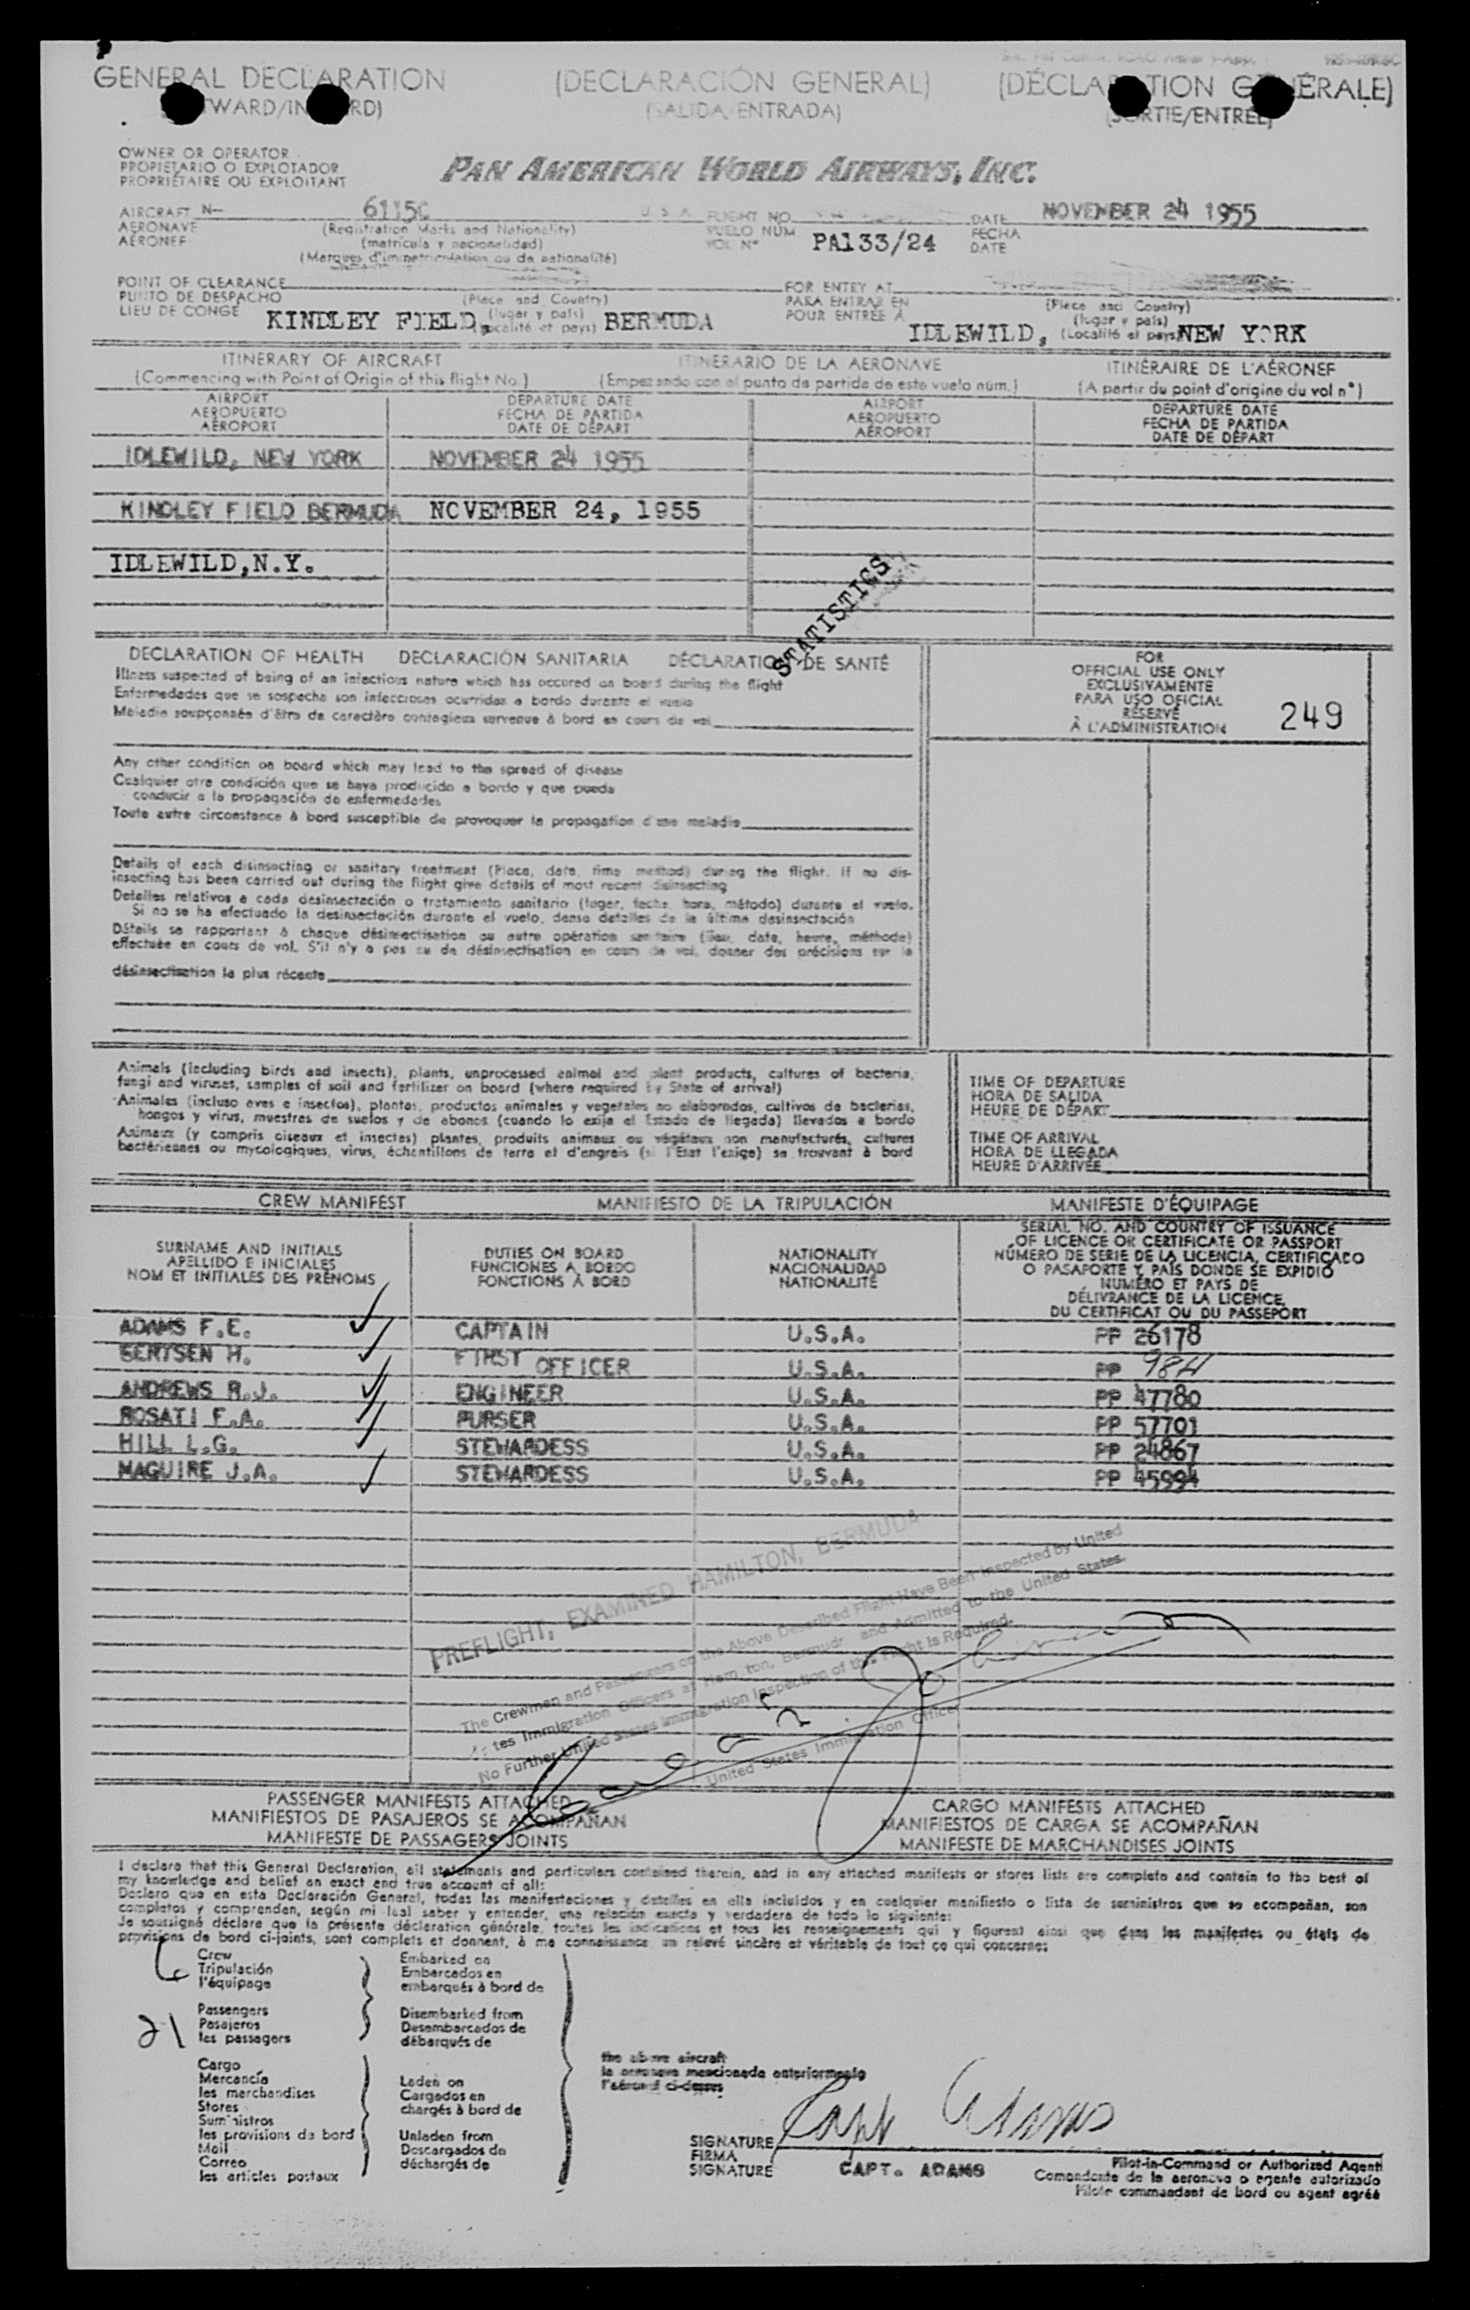 GENERAL DECLARATION (DECLARACIÓN GENERAL) (DÉCLARATION GÉNÉRALE)
(OUTWARD/INWARD) (SALIDA/ENTRADA) (SORTIE/ENTRÉE)
OWNER OR OPERATOR
PROPIETARIO O EXPLOTADOR
PROPRIÉTAIRE OU EXPLOITANT
PAN AMERICAN WORLD AIRWAYS, INC.
AIRCRAFT N- 6115C U S A FLIGHT NO. DATE NOVEMBER 24 1955
AERONAVE (Registration Marks and Nationality) VUELO NÚM PA133/24 FECHA
AÉRONEF (matrícula y nacionalidad) VOL N° DATE
(Marques d'immatriculation ou de nationalité)
POINT OF CLEARANCE FOR ENTRY AT
PUNTO DE DESPACHO (Place and Country) PARA ENTRAR EN (Place and Country)
LIEU DE CONGÉ KINDLEY FIELD, (lugar y país) BERMUDA POUR ENTRÉE À (lugar y país)
(Localité et pays) IDLEWILD, (Localité et pays) NEW YORK
ITINERARY OF AIRCRAFT ITINERARIO DE LA AERONAVE ITINÉRAIRE DE L'AÉRONEF
(Commencing with Point of Origin of this flight No.) (Empezando con el punto de partida de este vuelo núm.) (A partir du point d'origine du vol n°)
AIRPORT DEPARTURE DATE AIRPORT DEPARTURE DATE
AEROPUERTO FECHA DE PARTIDA AEROPUERTO FECHA DE PARTIDA
AÉROPORT DATE DE DÉPART AÉROPORT DATE DE DÉPART
IDLEWILD, NEW YORK NOVEMBER 24 1955
KINDLEY FIELD BERMUDA NOVEMBER 24, 1955
IDLEWILD,N.Y.
STATISTICS
DECLARATION OF HEALTH DECLARACIÓN SANITARIA DÉCLARATION DE SANTÉ
Illness suspected of being of an infectious nature which has occured on board during the flight
Enfermedades que se sospecha son infecciosas ocurridas a bordo durante el vuelo
Maladie soupçonnée d'être de caractère contagieux survenue à bord en cours de vol
FOR
OFFICIAL USE ONLY
EXCLUSIVAMENTE
PARA USO OFICIAL
RÉSERVÉ
À L'ADMINISTRATION
249
Any other condition on board which may lead to the spread of disease
Cualquier otra condición que se haya producido a bordo y que pueda
conducir a la propagación de enfermedades
Toute autre circonstance à bord susceptible de provoquer la propagation d'une maladie
Details of each disinsecting or sanitary treatment (Place, date, time method) during the flight. If no dis-
insecting has been carried out during the flight give details of most recent disinsecting
Detalles relativos a cada desinsectación o tratamiento sanitario (lugar, fecha, hora, método) durante el vuelo.
Si no se ha efectuado la desinsectación durante el vuelo, dense detalles de la última desinsectación
Détails se rapportant à chaque désinsectisation ou autre opération sanitaire (lieu, date, heure, méthode)
effectuée en cours de vol. S'il n'y a pas eu de désinsectisation en cours de vol, donner des précisions sur la
désinsectisation la plus récente
Animals (including birds and insects), plants, unprocessed animal and plant products, cultures of bacteria,
fungi and viruses, samples of soil and fertilizer on board (where required by State of arrival)
Animales (incluso aves e insectos), plantas, productos animales y vegetales no elaborados, cultivos de bacterias,
hongos y virus, muestras de suelos y de abonos (cuando lo exija el Estado de llegada) llevados a bordo
Animaux (y compris oiseaux et insectes) plantes, produits animaux ou végétaux non manufacturés, cultures
bactériennes ou mycologiques, virus, échantillons de terre et d'engrais (si l'État l'exige) se trouvant à bord
TIME OF DEPARTURE
HORA DE SALIDA
HEURE DE DÉPART
TIME OF ARRIVAL
HORA DE LLEGADA
HEURE D'ARRIVÉE
CREW MANIFEST MANIFIESTO DE LA TRIPULACIÓN MANIFESTE D'ÉQUIPAGE
SURNAME AND INITIALS
APELLIDO E INICIALES
NOM ET INITIALES DES PRÉNOMS
DUTIES ON BOARD
FUNCIONES A BORDO
FONCTIONS À BORD
NATIONALITY
NACIONALIDAD
NATIONALITÉ
SERIAL NO. AND COUNTRY OF ISSUANCE
OF LICENCE OR CERTIFICATE OR PASSPORT
NÚMERO DE SERIE DE LA LICENCIA, CERTIFICADO
O PASAPORTE Y PAÍS DONDE SE EXPIDIÓ
NUMÉRO ET PAYS DE
DÉLIVRANCE DE LA LICENCE,
DU CERTIFICAT OU DU PASSEPORT
ADAMS F.E. CAPTAIN U.S.A. PP 26178
BERTSEN H. FIRST OFFICER U.S.A. PP 984
ANDREWS R.J. ENGINEER U.S.A. PP 47780
ROSATI F.A. PURSER U.S.A. PP 57701
HILL L.G. STEWARDESS U.S.A. PP 24867
MAGUIRE J.A. STEWARDESS U.S.A. PP 45994
PREFLIGHT, EXAMINED HAMILTON, BERMUDA
The Crewmen and Passengers on the Above Described Flight Have Been Inspected by United
States Immigration Officers at Hamilton, Bermuda and Admitted to the United States.
No Further United States Immigration Inspection of this Flight Is Required.
United States Immigration Officer
PASSENGER MANIFESTS ATTACHED CARGO MANIFESTS ATTACHED
MANIFIESTOS DE PASAJEROS SE ACOMPAÑAN MANIFIESTOS DE CARGA SE ACOMPAÑAN
MANIFESTE DE PASSAGERS JOINTS MANIFESTE DE MARCHANDISES JOINTS
I declare that this General Declaration, all statements and particulars contained therein, and in any attached manifests or stores lists are complete and contain to the best of
my knowledge and belief an exact and true account of all:
Declaro que en esta Declaración General, todas las manifestaciones y detalles en ella incluidos y en cualquier manifiesto o lista de suministros que se acompañan, son
completos y comprenden, según mi leal saber y entender, una relación exacta y verdadera de todo lo siguiente:
Je soussigné déclare que la présente déclaration générale, toutes les indications et tous les renseignements qui y figurent ainsi que dans les manifestes ou états de
provisions de bord ci-joints, sont complets et donnent, à ma connaissance un relevé sincère et véritable de tout ce qui concerne:
6 Crew
Tripulación
l'équipage
21 Passengers
Pasajeros
les passagers
Cargo
Mercancía
les marchandises
Stores
Suministros
les provisions de bord
Mail
Correo
les articles postaux
Embarked on
Embarcados en
embarqués à bord de
Disembarked from
Desembarcados de
débarqués de
Laden on
Cargados en
chargés à bord de
Unladen from
Descargados de
déchargés de
the above aircraft
la aeronave mencionada anteriormente
l'aéronef ci-dessus
Capt Adams
SIGNATURE
FIRMA
SIGNATURE
CAPT. ADAMS
Pilot-in-Command or Authorized Agent
Comandante de la aeronave o agente autorizado
Pilote commandant de bord ou agent agréé